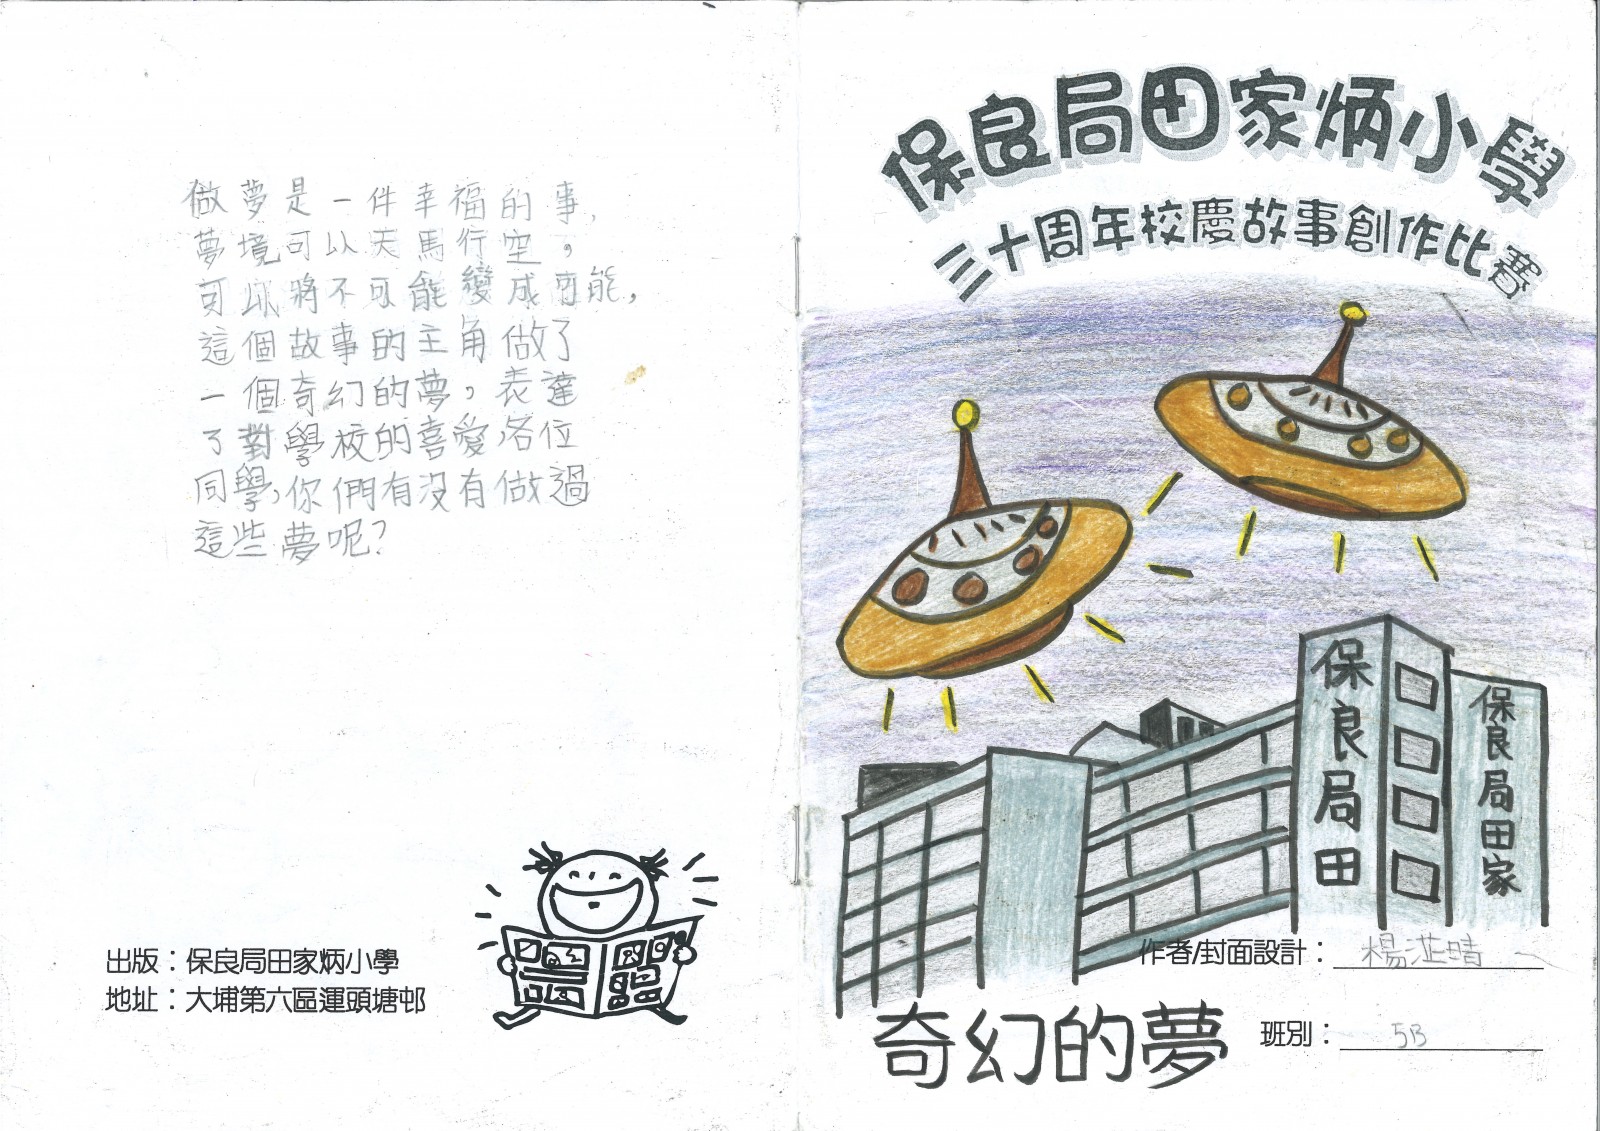 做夢是一件幸福的事,
夢境可以天馬行空,
可以將不可能變成可能,
這個故事的主角做了
一個奇幻的夢,表達
了對學校的喜愛,各位
同學,你們有沒有做過
這些夢呢?
出版:保良局田家炳小學
地址:大埔第六區運頭塘邨
保良局田家炳小學
三十周年校慶故事創作比賽
保良局田
保良局田家
作者/封面設計:楊芷晴
奇幻的夢
班別:5B